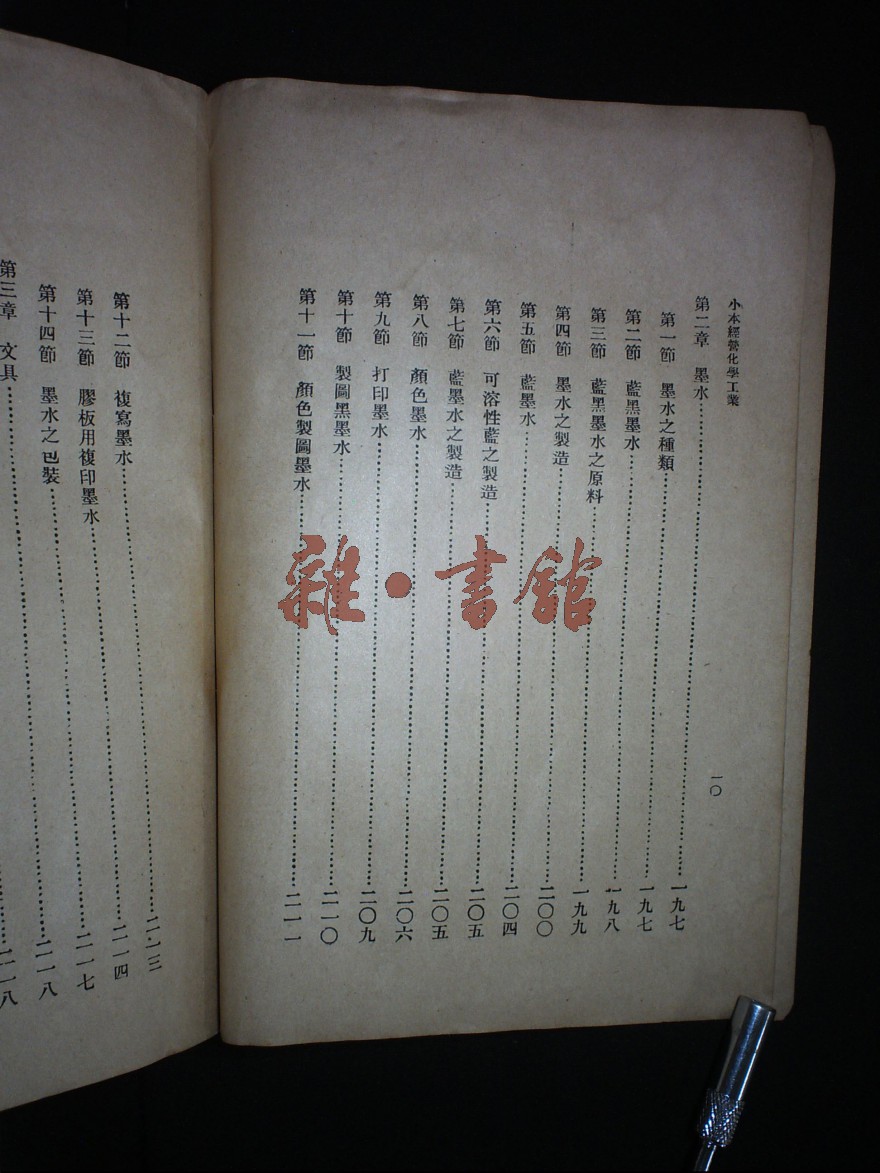 小本經營化學工業
第二章　墨水……一九七
第一節　墨水之種類……一九七
第二節　藍黑墨水……一九八
第三節　藍黑墨水之原料……一九九
第四節　墨水之製造……二〇〇
第五節　藍墨水……二〇四
第六節　可溶性藍之製造……二〇五
第七節　藍墨水之製造……二〇五
第八節　顏色墨水……二〇六
第九節　打印墨水……二〇九
第十節　製圖黑墨水……二一〇
第十一節　顏色製圖墨水……二一一
一〇
第十二節　複寫墨水……二一三
第十三節　膠板用複印墨水……二一四
第十四節　墨水之包裝……二一七
第三章　文具……二一八
二一八
雜·書館